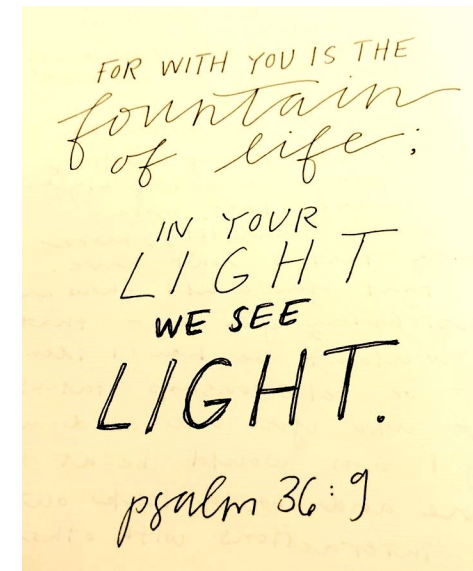 FOR WITH YOU IS THE
fountain
of life;
IN YOUR
LIGHT
WE SEE
LIGHT.
psalm 36:9